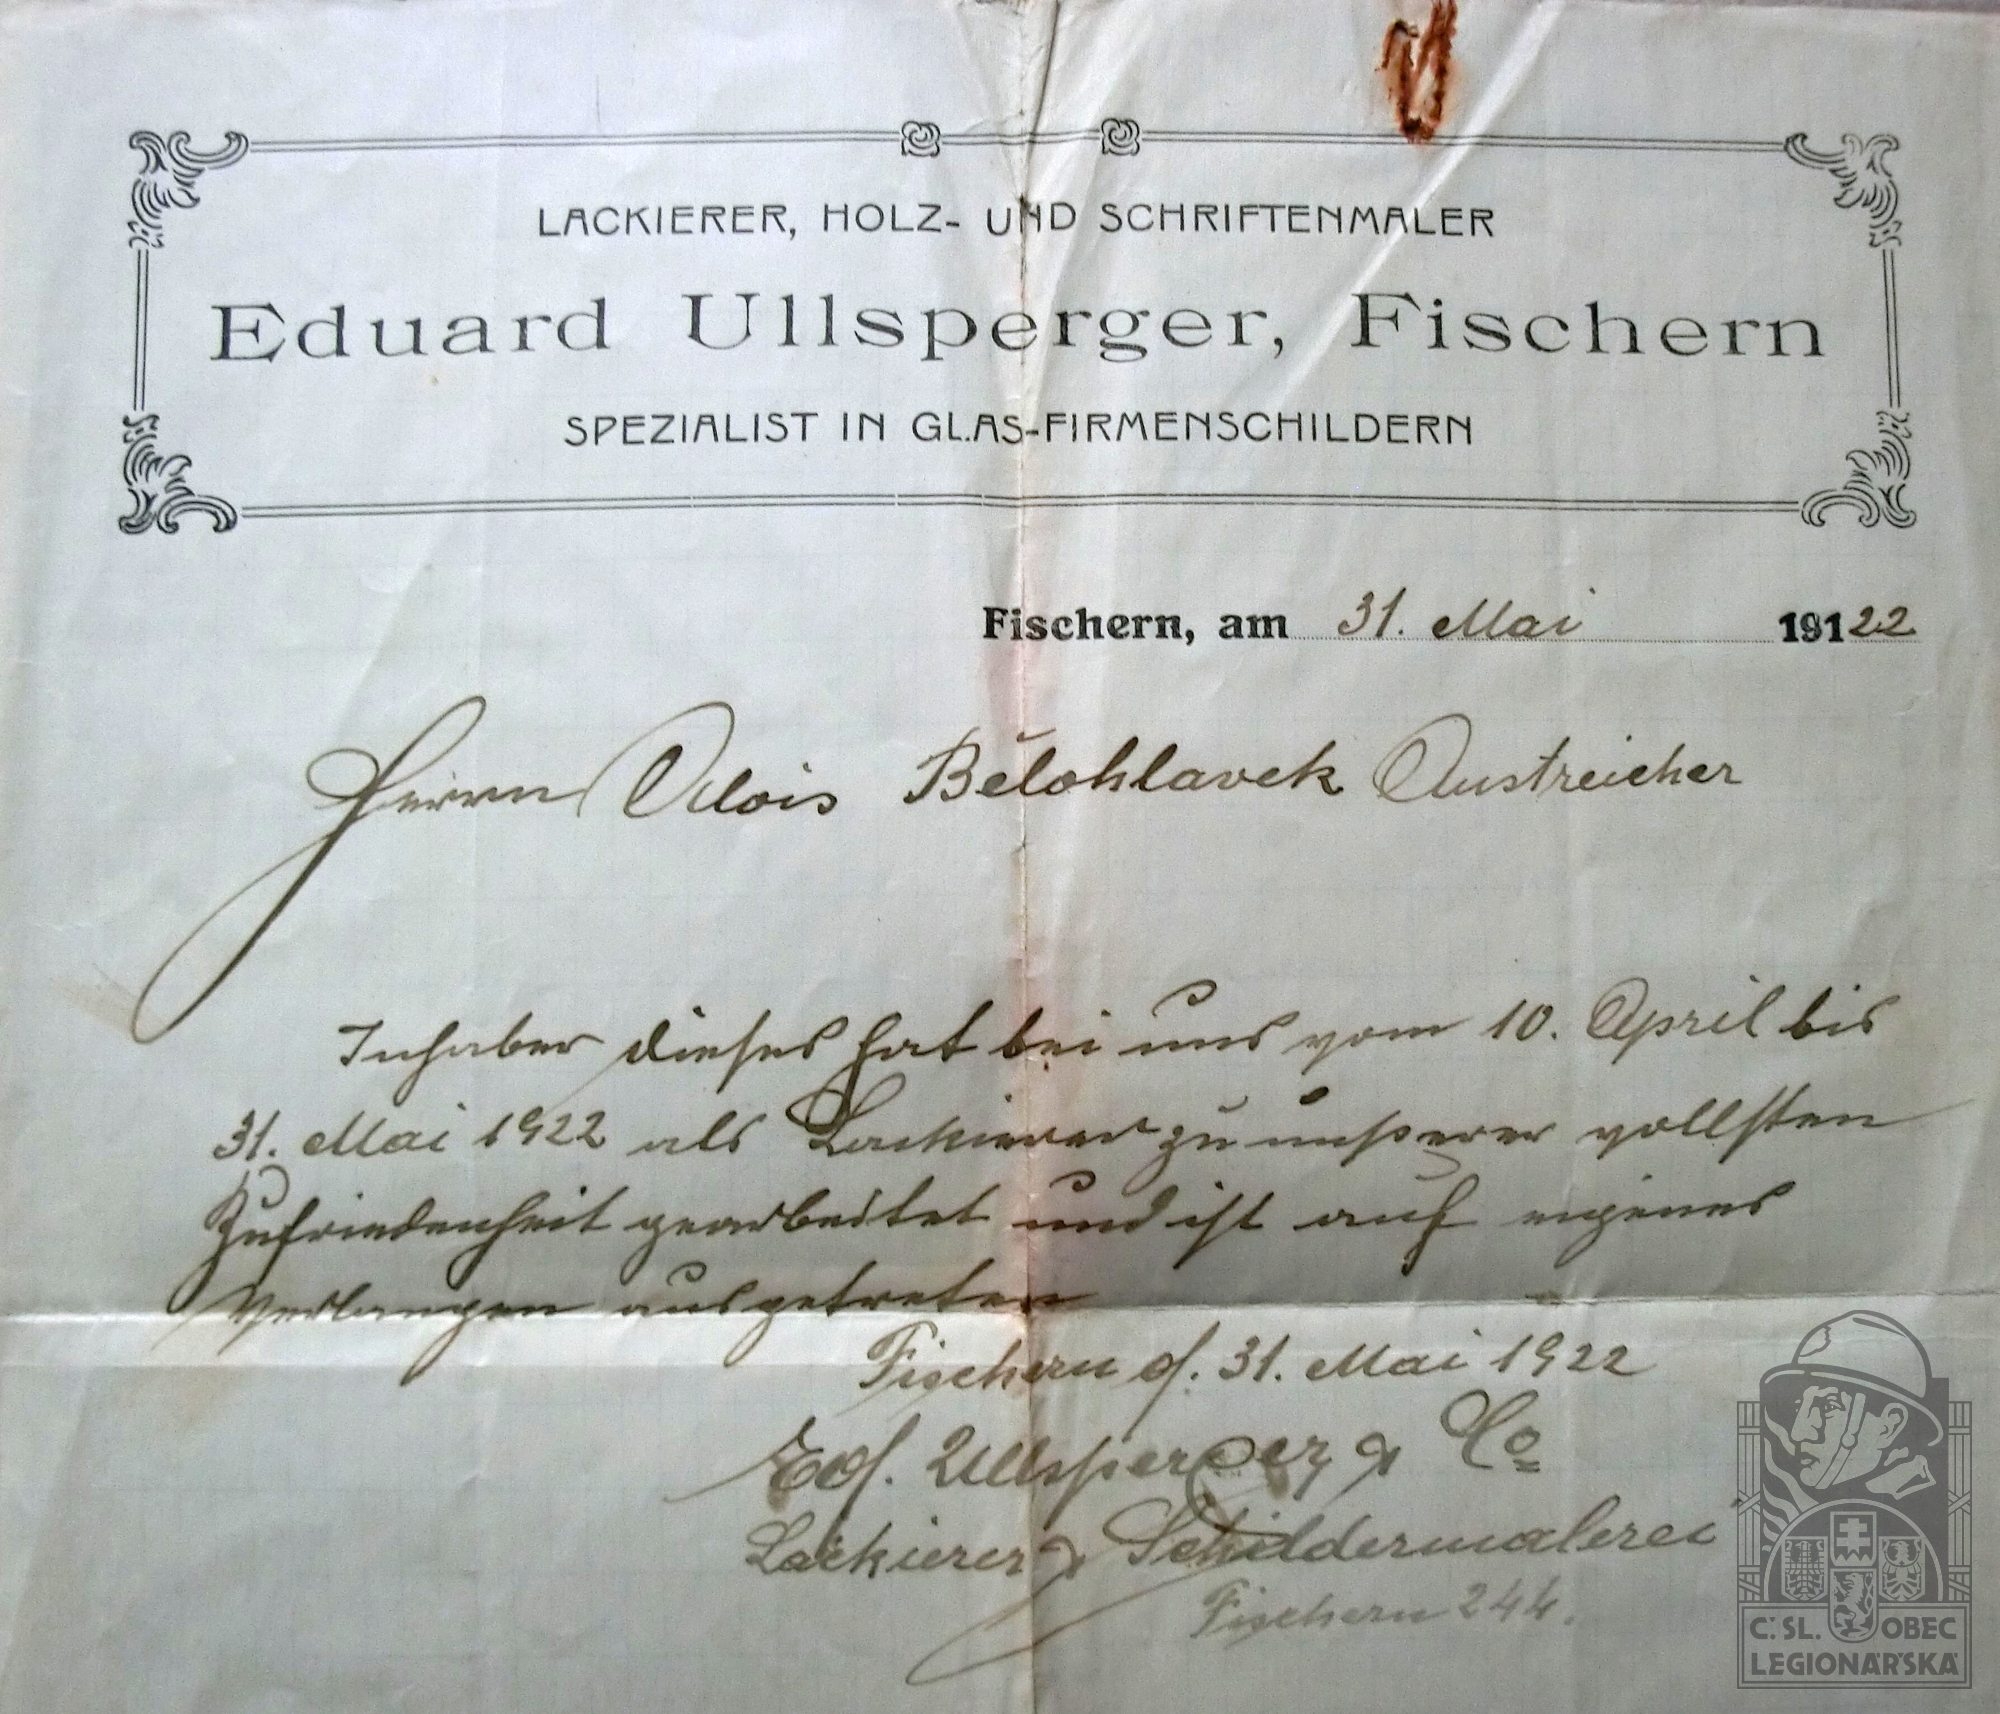 LACKIERER, HOLZ- UND SCHRIFTENMALER
Eduard Ullsperger, Fischern
SPEZIALIST IN GLAS-FIRMENSCHILDERN
Fischern, am 31. Mai 19122
Herrn Alois Bělohlavek Anstreicher
Inhaber dieses hat bei uns vom 10. April bis
31. Mai 1922 als Lackierer zu unserer vollsten
Zufriedenheit gearbeitet und ist auf eigenes
Verlangen ausgetreten
Fischern d. 31. Mai 1922
Ed. Ullsperger & Co
Lackierer & Schildermalerei
Fischern 244.
Č. SL. OBEC
LEGIONÁŘSKÁ